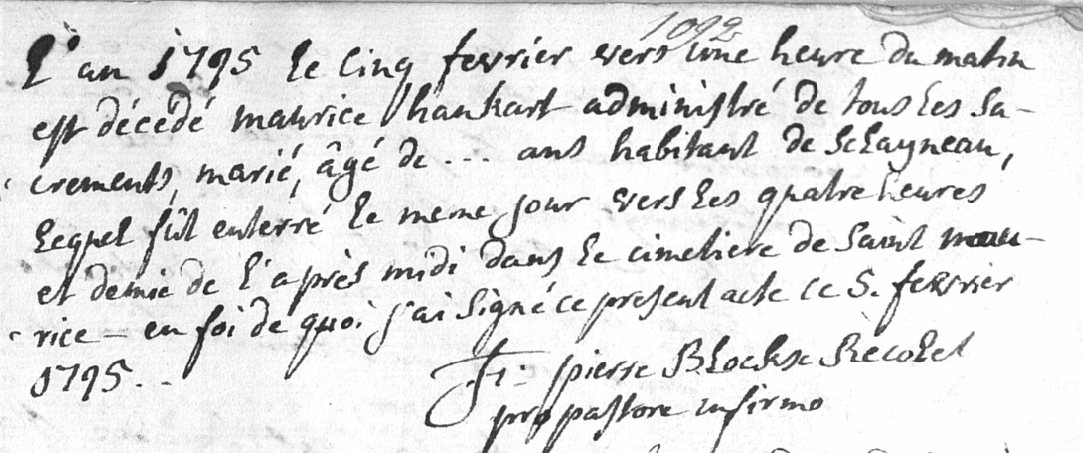 1092
L'an 1795 le cinq fevrier vers une heure du matin
est décédé maurice hankart administré de tous les sa-
crements, marié, âgé de --- ans habitant de Sclayneau,
Lequel fût enterré le meme jour vers les quatre heures
et demie de l'après midi dans le cimetiere de Saint mau-
rice - en foi de quoi j'ai signé ce present acte ce 5. fevrier
1795. -
Fr: pierre Recolet
pro pastore infirmo